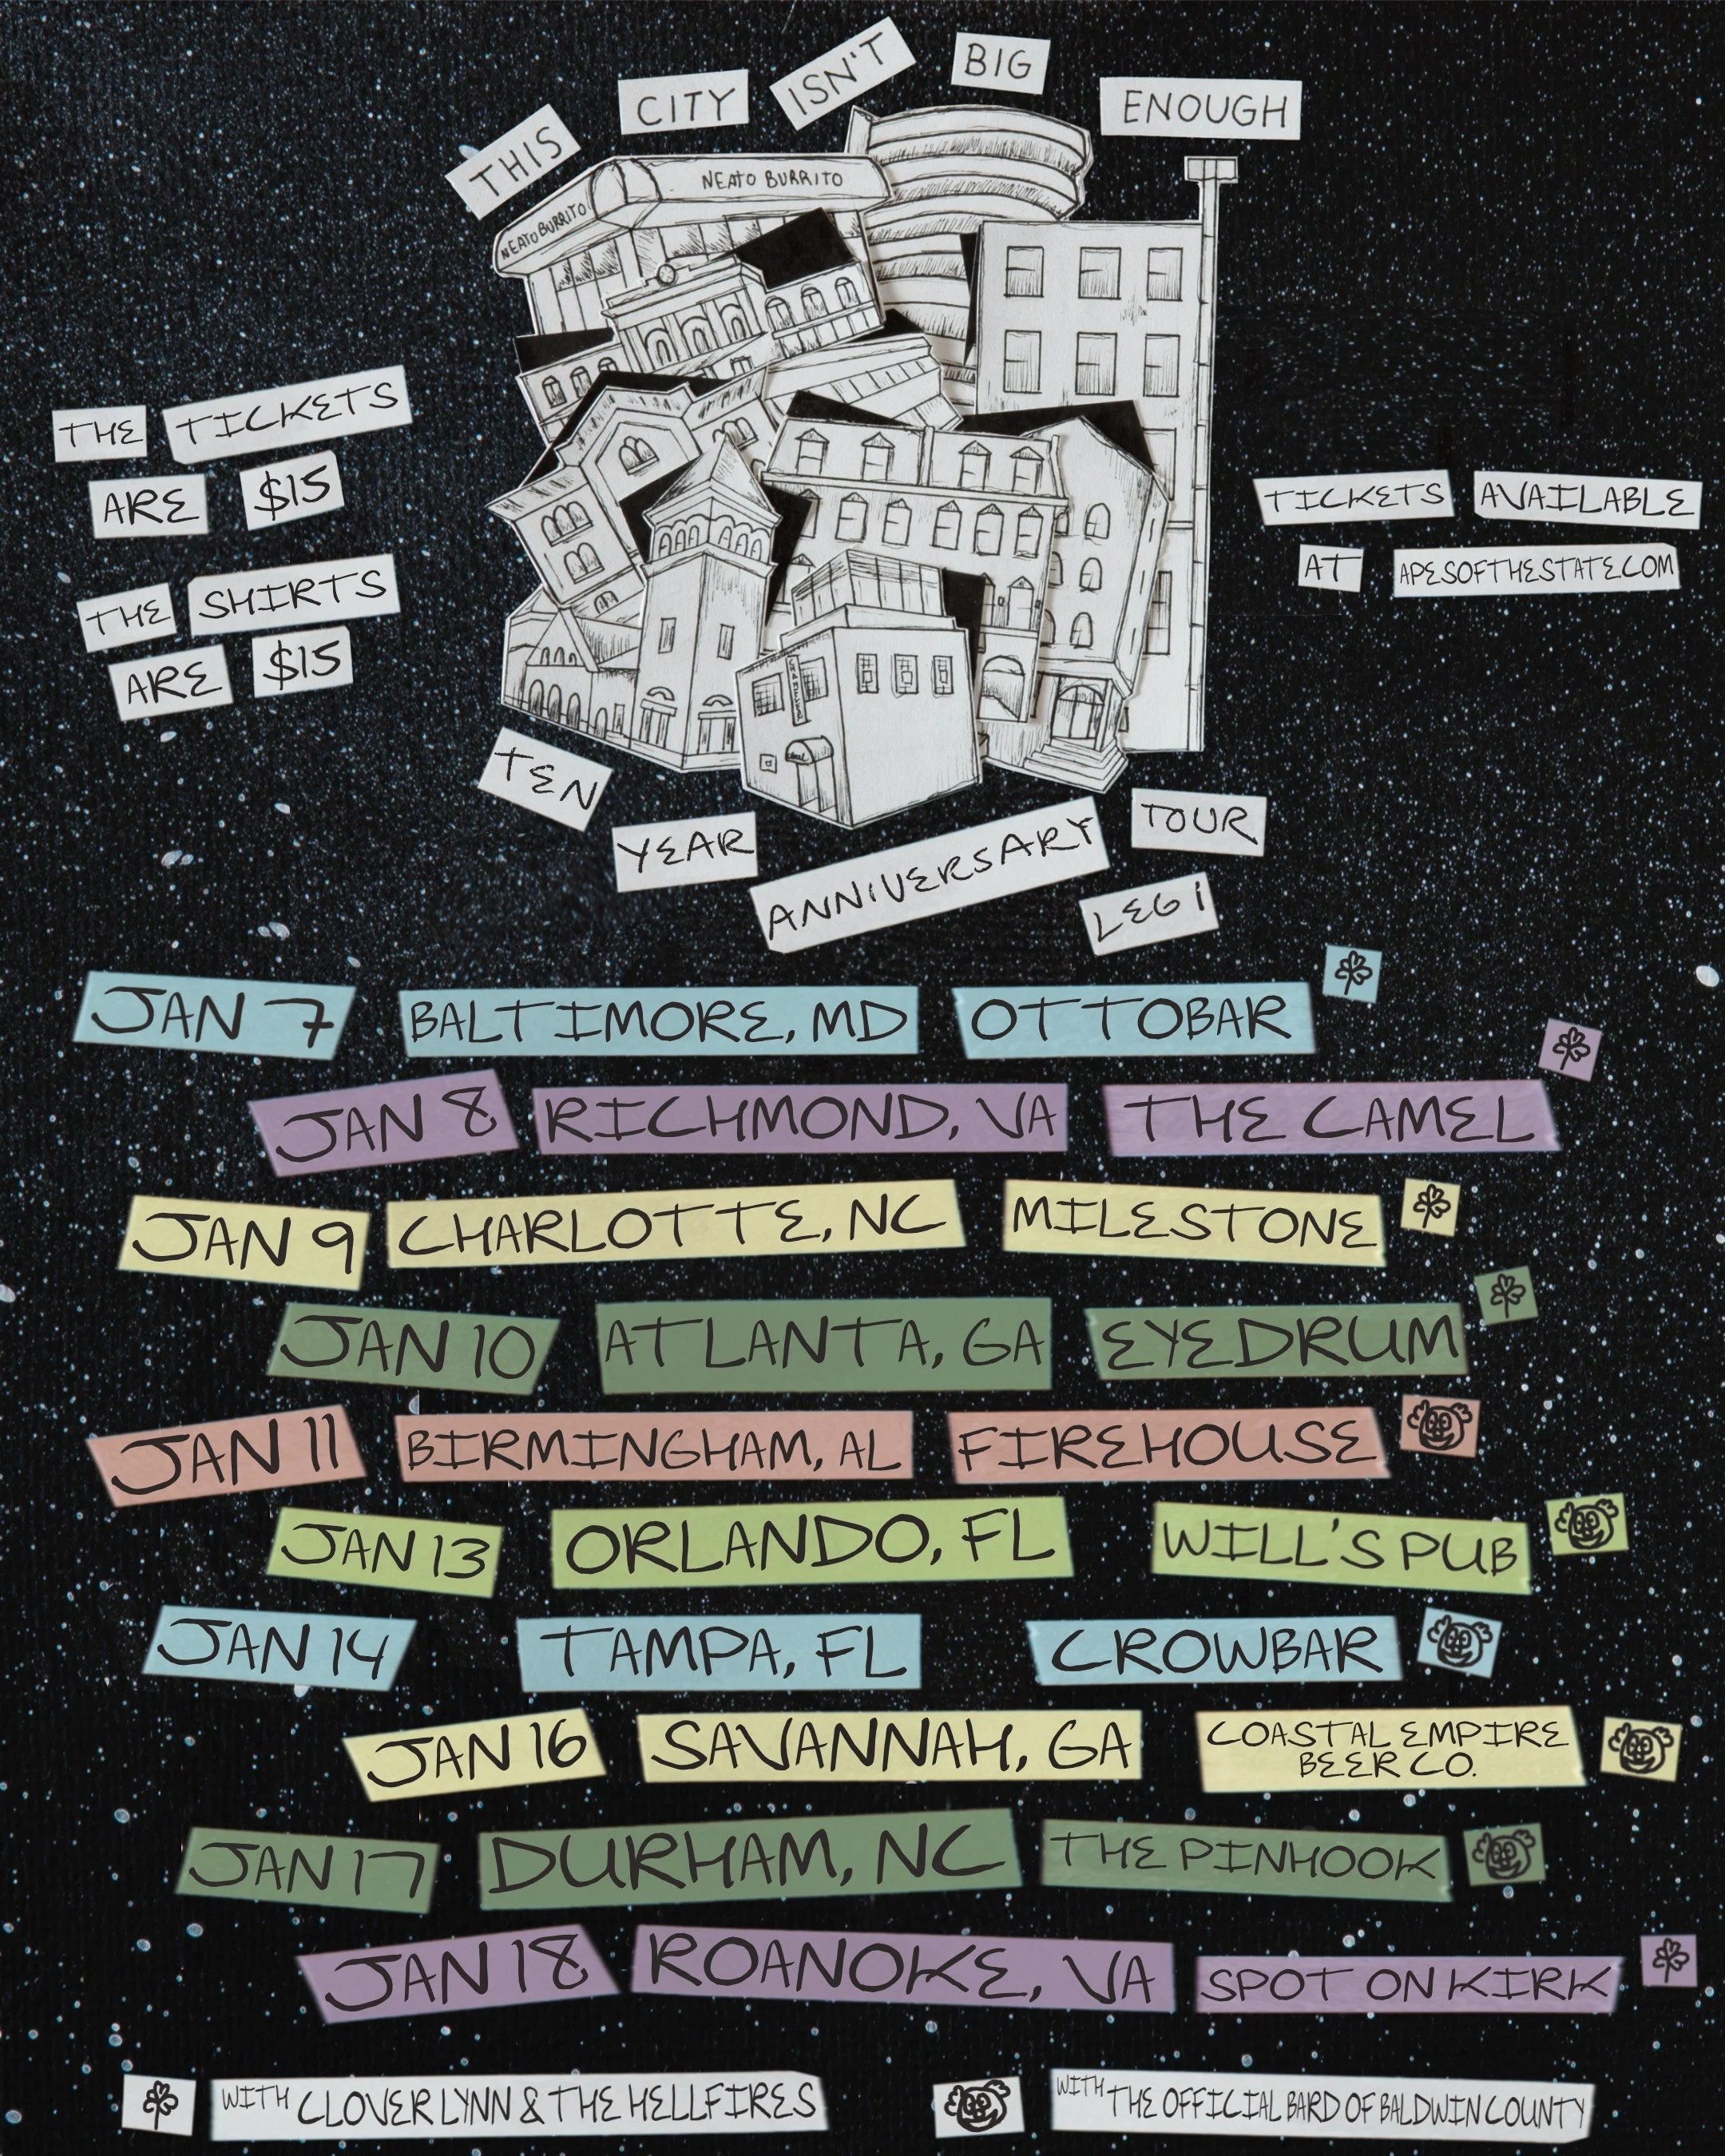 THIS CITY ISN'T BIG ENOUGH
NEATO BURRITO
NEATO BURRITO
THE TICKETS
ARE $15
THE SHIRTS
ARE $15
TICKETS AVAILABLE
AT APESOFTHESTATE.COM
TEN YEAR ANNIVERSARY TOUR
LEG 1
JAN 7 BALTIMORE, MD OTTOBAR
JAN 8 RICHMOND, VA THE CAMEL
JAN 9 CHARLOTTE, NC MILESTONE
JAN 10 ATLANTA, GA EYEDRUM
JAN 11 BIRMINGHAM, AL FIREHOUSE
JAN 13 ORLANDO, FL WILL'S PUB
JAN 14 TAMPA, FL CROWBAR
JAN 16 SAVANNAH, GA COASTAL EMPIRE
BEER CO.
JAN 17 DURHAM, NC THE PINHOOK
JAN 18 ROANOKE, VA SPOT ON KIRK
WITH CLOVER LYNN & THE HELLFIRES
WITH THE OFFICIAL BARD OF BALDWIN COUNTY